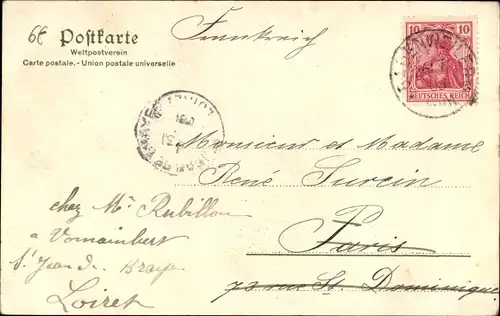 6E
Postkarte
Weltpostverein
Carte postale. - Union postale universelle
Frankreich
10 10
DEUTSCHES REICH
LOIRET
Monsieur et Madame
René Surcin
Paris
73 rue St. Dominique
chez Mr Rubillon
a Vomimbert
St Jean de Braye
Loiret